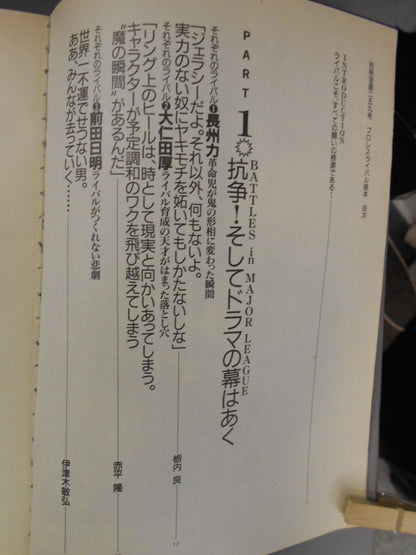 別冊宝島二五九号 プロレスライバル読本 目次
INTRODUCTION
ライバルこそ、すべての闘いの根源である
PART 1
BATTLES in MAJOR LEAGUE
抗争！そしてドラマの幕はあく
それぞれのライバル❶長州力 革命児が鬼の形相に変わった瞬間
「ジェラシーだよ。それ以外、何もないよ。
実力のない奴にヤキモチを妬いてもしかたないしな」
栃内 良
12
それぞれのライバル❷大仁田厚 ライバル育成の天才がはまった落とし穴
「リング上のヒールは、時として現実と向かいあってしまう。
キャラクターが予定調和のワクを飛び越えてしまう
“魔の瞬間”があるんだ」
赤平 隆
それぞれのライバル❸前田日明 ライバルがつくれない悲劇
世界一不運でせつない男。
ああ、みんなが去っていく……
伊津木敏弘